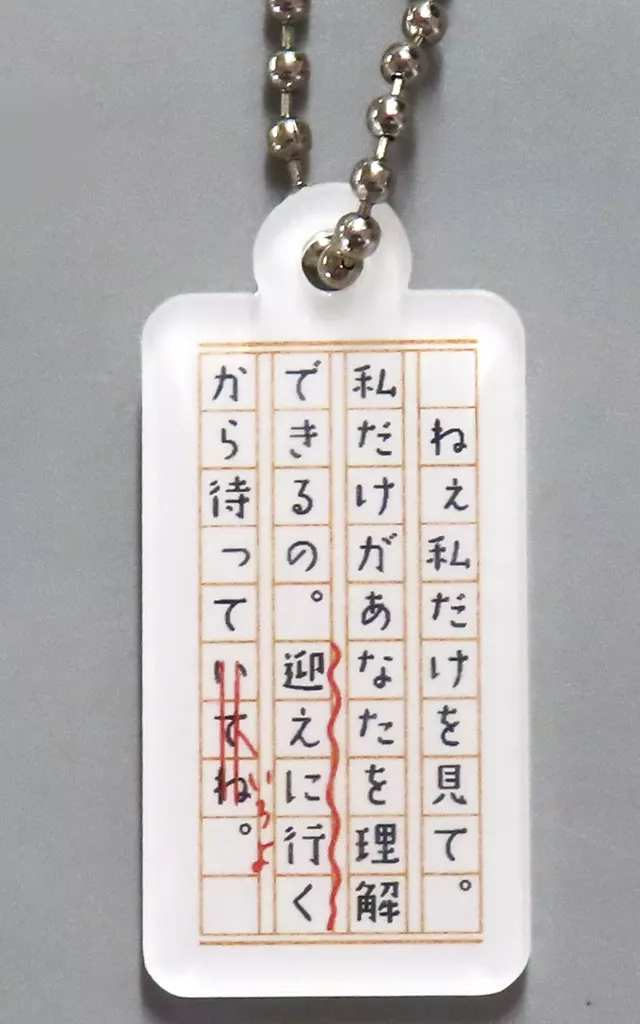 ねぇ私だけを見て。
私だけがあなたを理解
できるの。迎えに行く
から待っていてね。
いろよ